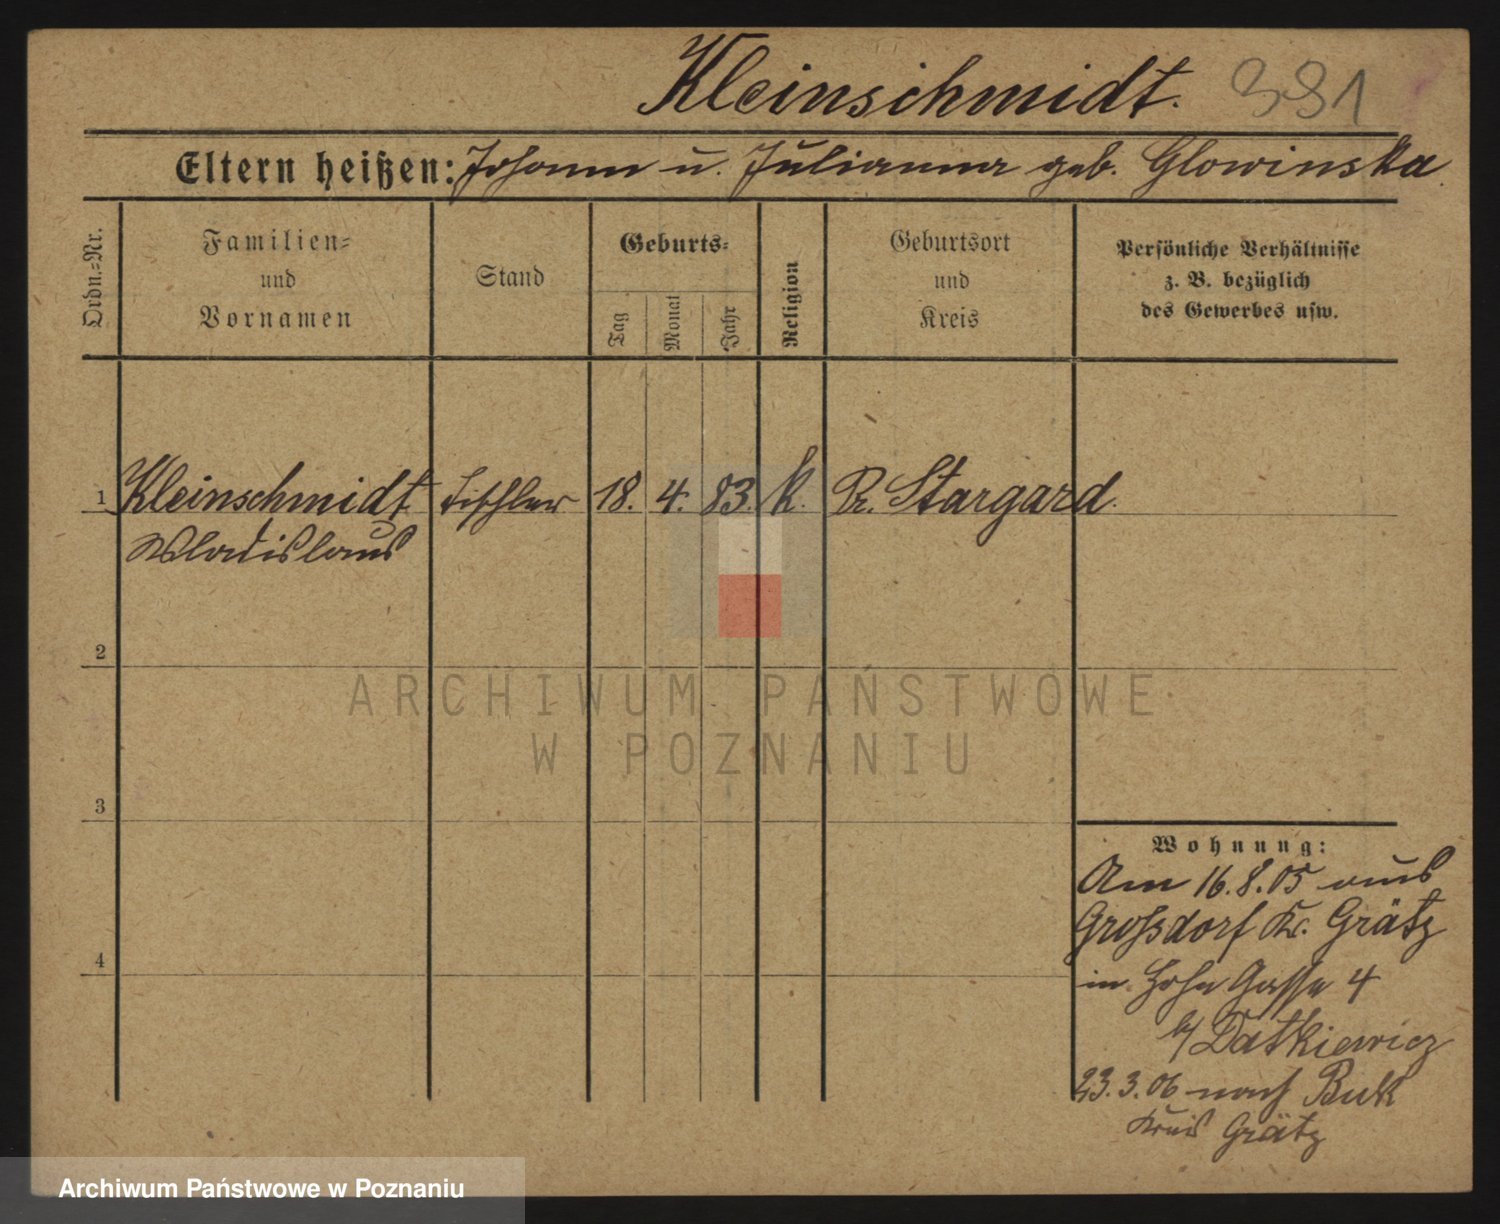 Kleinschmidt. 391
Eltern heißen: Johann u. Julianna geb. Glowinska.
Ordn.-Nr.
Familien-
und
Vornamen
Stand
Geburts-
Tag
Monat
Jahr
Religion
Geburtsort
und
Kreis
Persönliche Verhältnisse
z. B. bezüglich
des Gewerbes usw.
1 Kleinschmidt Tischler 18. 4. 83. k. Pr. Stargard.
Wladislaus
2
ARCHIWUM PAŃSTWOWE
W POZNANIU
3
4
Wohnung:
Am 16.8.05 aus
Grossdorf Kr. Grätz
in Hohe Gasse 4
b/ Datkiewicz
23.3.06 nach Buk
Kreis Grätz
Archiwum Państwowe w Poznaniu